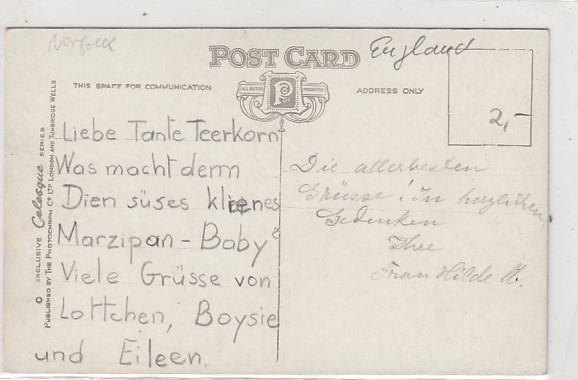 Norfolk
POST CARD
England
THIS SPACE FOR COMMUNICATION
ADDRESS ONLY
ALL BRITISH PRODUCTION
P
2,-
Liebe Tante Teerkorn
Was macht denn
Dien süses klienes
Marzipan-Baby?
Viele Grüsse von
Lottchen, Boysie
und Eileen.
Die allerbesten
Grüsse! In herzlichem
Gedenken
Ihre
Frau Hilde K.
EXCLUSIVE Celesque SERIES
PUBLISHED BY THE PHOTOCHROM CO LTD LONDON AND TUNBRIDGE WELLS